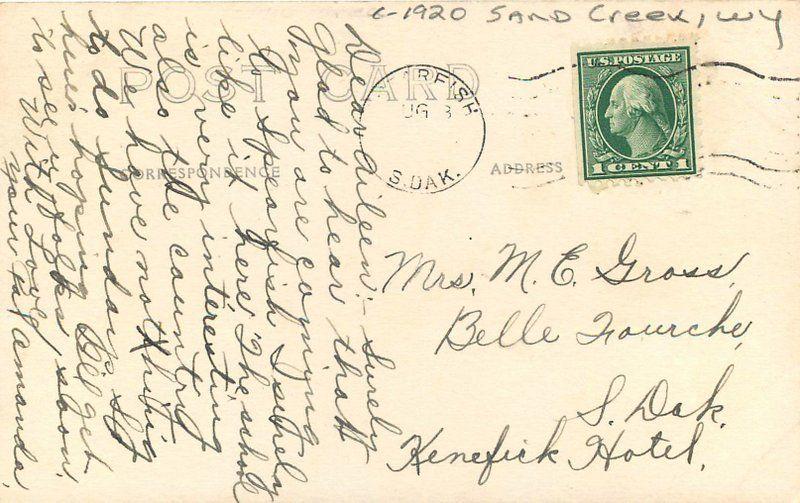 c-1920 Sand Creek, WY
POST CARD
CORRESPONDENCE
ADDRESS
ARFISH
UG 3
S. DAK.
U.S. POSTAGE
1 CENT 1
Dear Aileen:- Surely
glad to hear that
you are coming
to Spearfish I surely
like it here. The school
is very interesting
also the country
We have nothing
to do Sunday so
here's hoping I'll get
to see u folks soon.
With Love,
your's Amanda.
Mrs. M. E. Gross,
Belle Fourche,
S. Dak.
Kenefick Hotel.